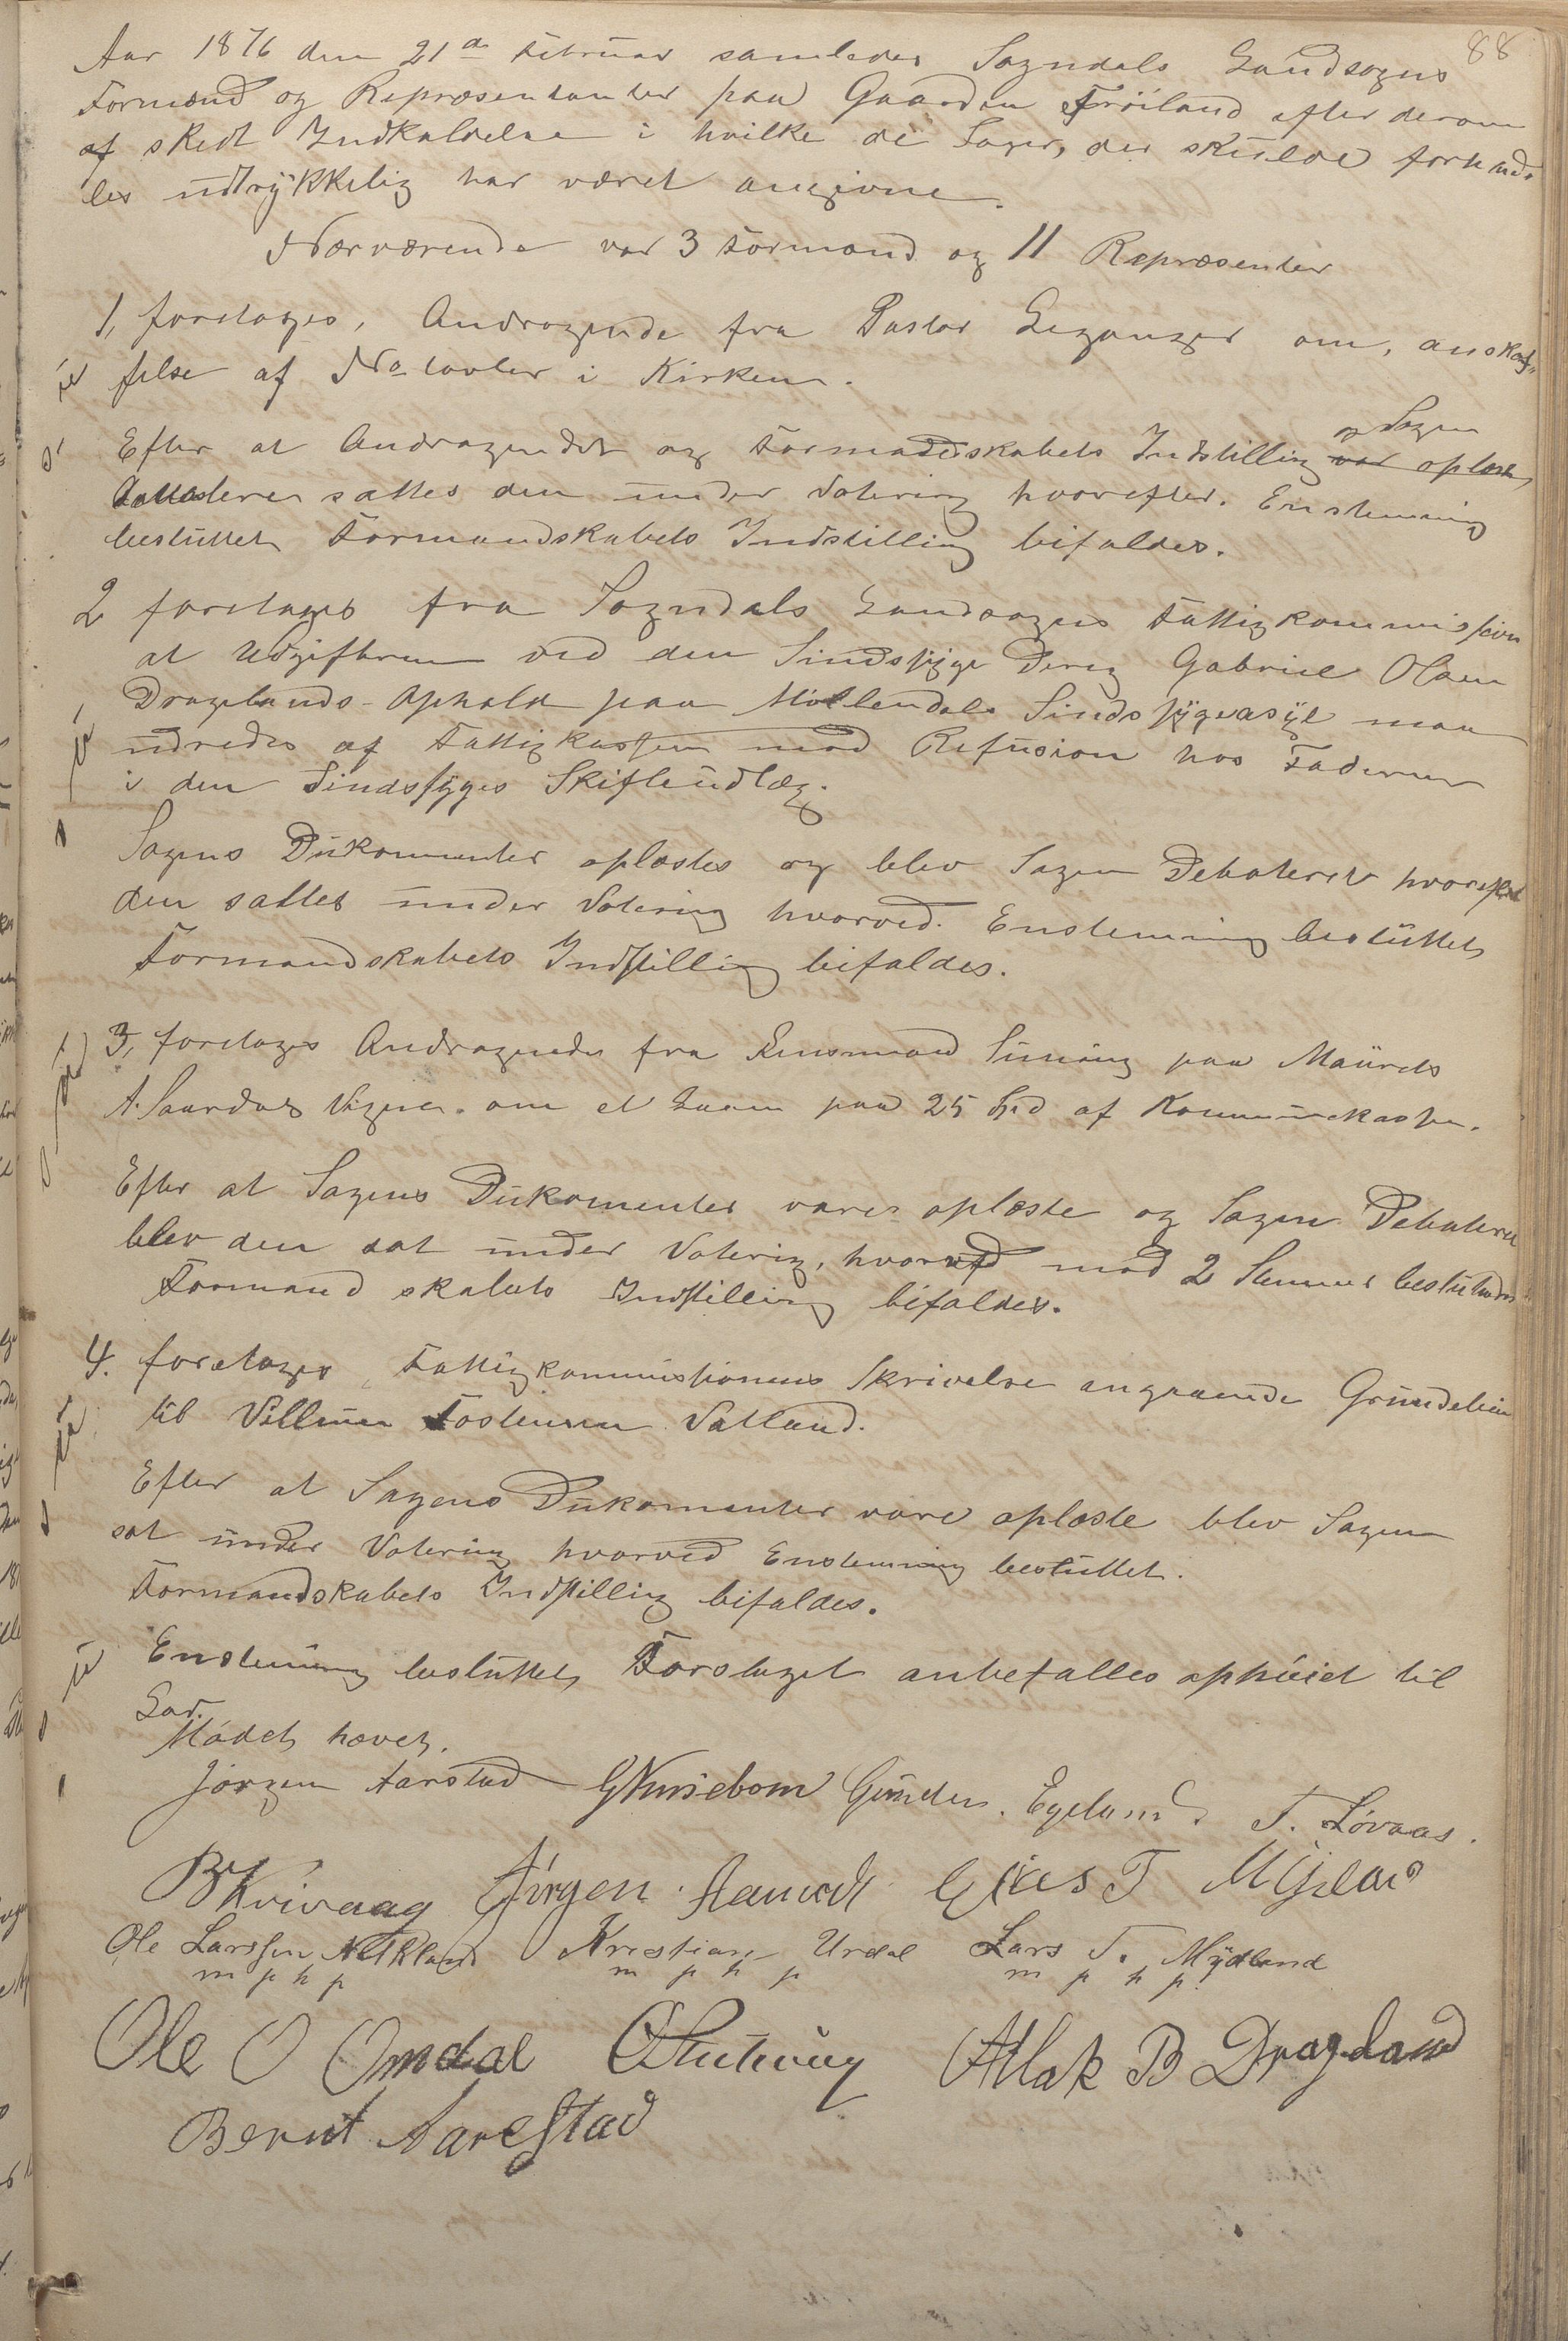 88
Aar 1876 den 21de Februar samledes Sogndals Landsogns
Formænd og Repræsentanter paa Gaarden Frøiland efter derom
af skedt Indkaldelse i hvilke de Sager, der skulde forhand
les udtrykkelig har været angivne.
Nærværende var 3 Formænd og 11 Repræsenter
1, foretoges, Andragende fra Pastor om, anskaf"
felse af No tavler i Kirken.
Efter at Andragendet og Formandskabets Indstilling var oplæst,
og Sagen
sattes den under Votering hvorefter. Enstemmig
besluttet, Formandskabets Indstilling bifaldes.
2 foretoges fra Sogndals Landsogns Fattigkommission
at Udgifterne ved den Sindssyge Gabriel Olsen
Dragelands Ophold paa Møllendals Sindssygeasyl maa
udredes af Fattigkassen mod Refusion hos Faderen
i den Sindssyges Skifteudlæg.
Sagens Dukomenter oplæstes og blev Sagen Debateret hvorefter
den sattes under Votering hvorved. Enstemmig besluttet,
Formandskabets Indstilling bifaldes.
3, foretoges Andragende fra Simning paa
A. om et Laan paa 25 Spd af Kommunekassen.
Efter at Sagens Dukomenter vare oplæste og Sagen Debateret
blev den sat under Votering, hvorved mod 2 Stemmer besluttedes
Formandskabets Indstilling bifaldes.
4. foretoges, Fattigkommissionens Skrivelse angaaende
til Tostensen Vatland.
Efter at Sagens Dukomenter vare oplæste blev Sagen
sat under Votering hvorved Enstemmig besluttet.
Formandskabets Indstilling bifaldes.
Enstemmig besluttet, Forslaget anbefalles ophøiet til
Lov.
Mødet hævet.
Jørgen Aarstad Gunder. Egeland. T. Løvaas.
B Kvivaag Jørgen Elias T Mydland
Ole Larssen Netland Kristian Urdal Lars T. Mydland
m p h p m p h p m p h p
Ole O Omdal Atlak B Dragland
Bernt Aarestad